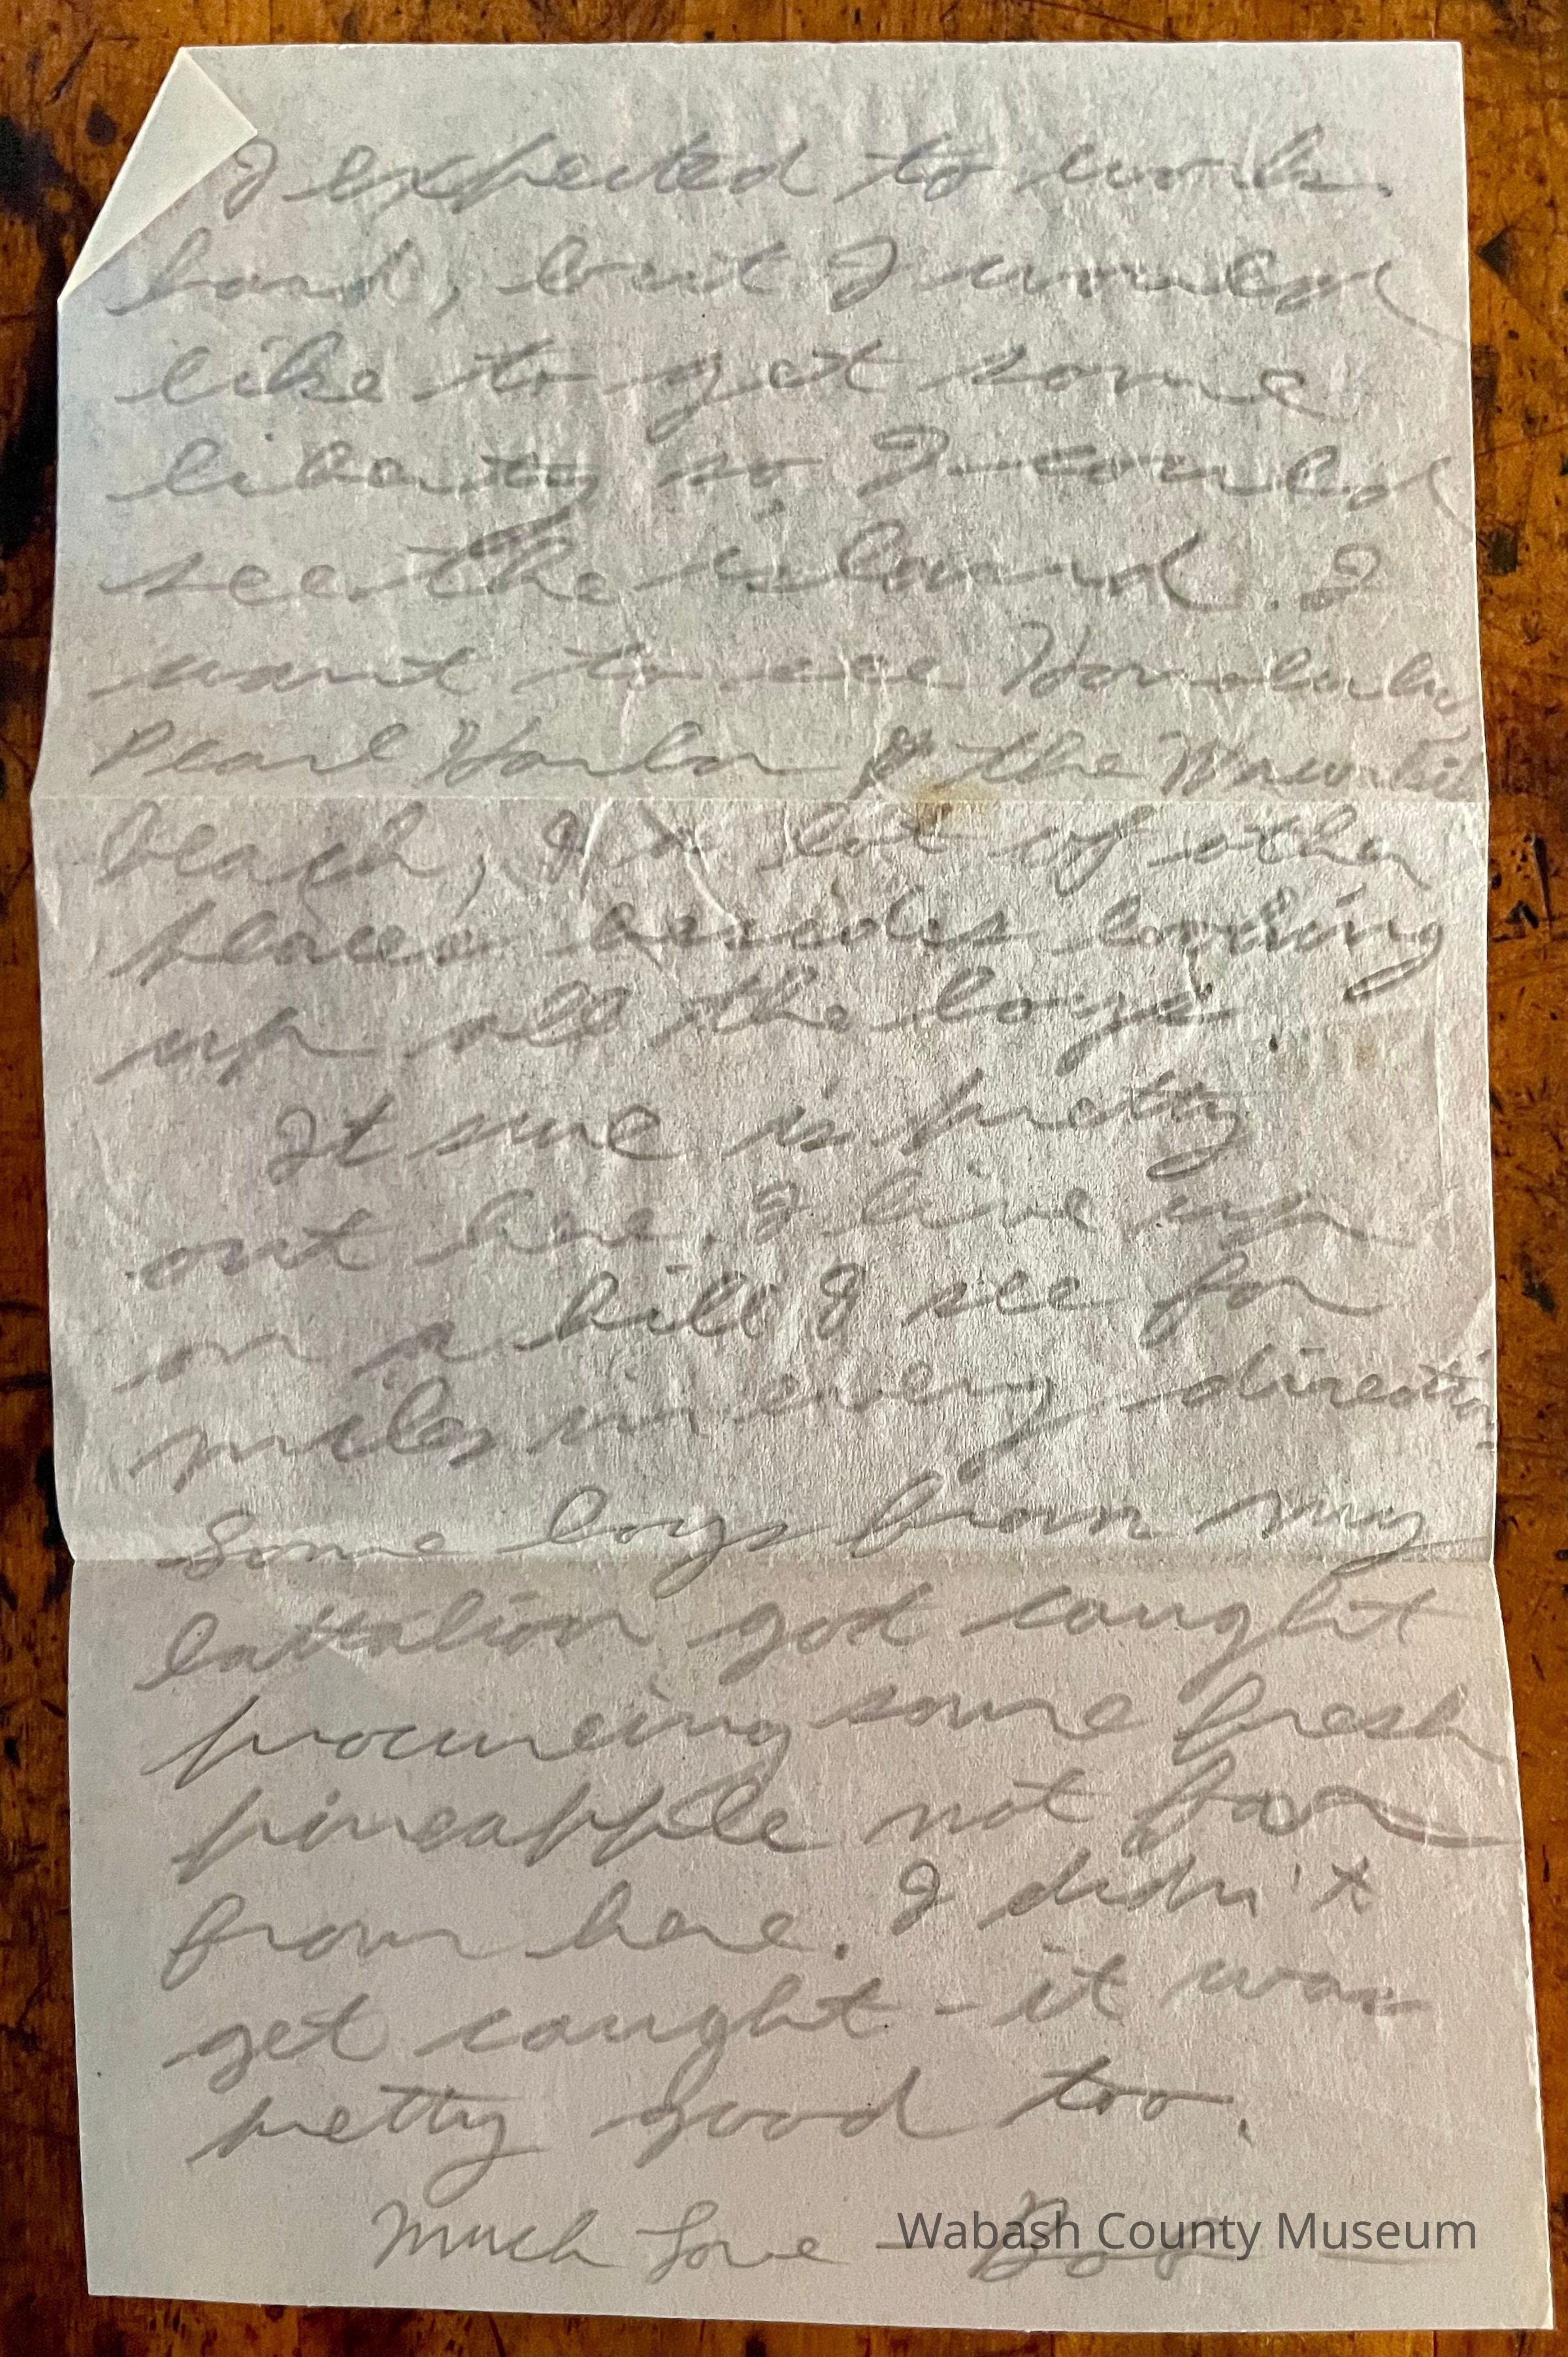 I expected to work
hard, but I would
like to get some
liberty so I could
see the island. I
want to see Honolulu
Pearl Harbor & the Waikiki
beach, & a lot of other
places besides looking
up all the boys.
It sure is pretty
out here. I live up
on a hill & see for
miles in every direction.
Some boys from my
battalion got caught
procureing some fresh
pineapple not far
from here. I didn't
get caught - it was
pretty good too.
Much Love - Bob -
Wabash County Museum